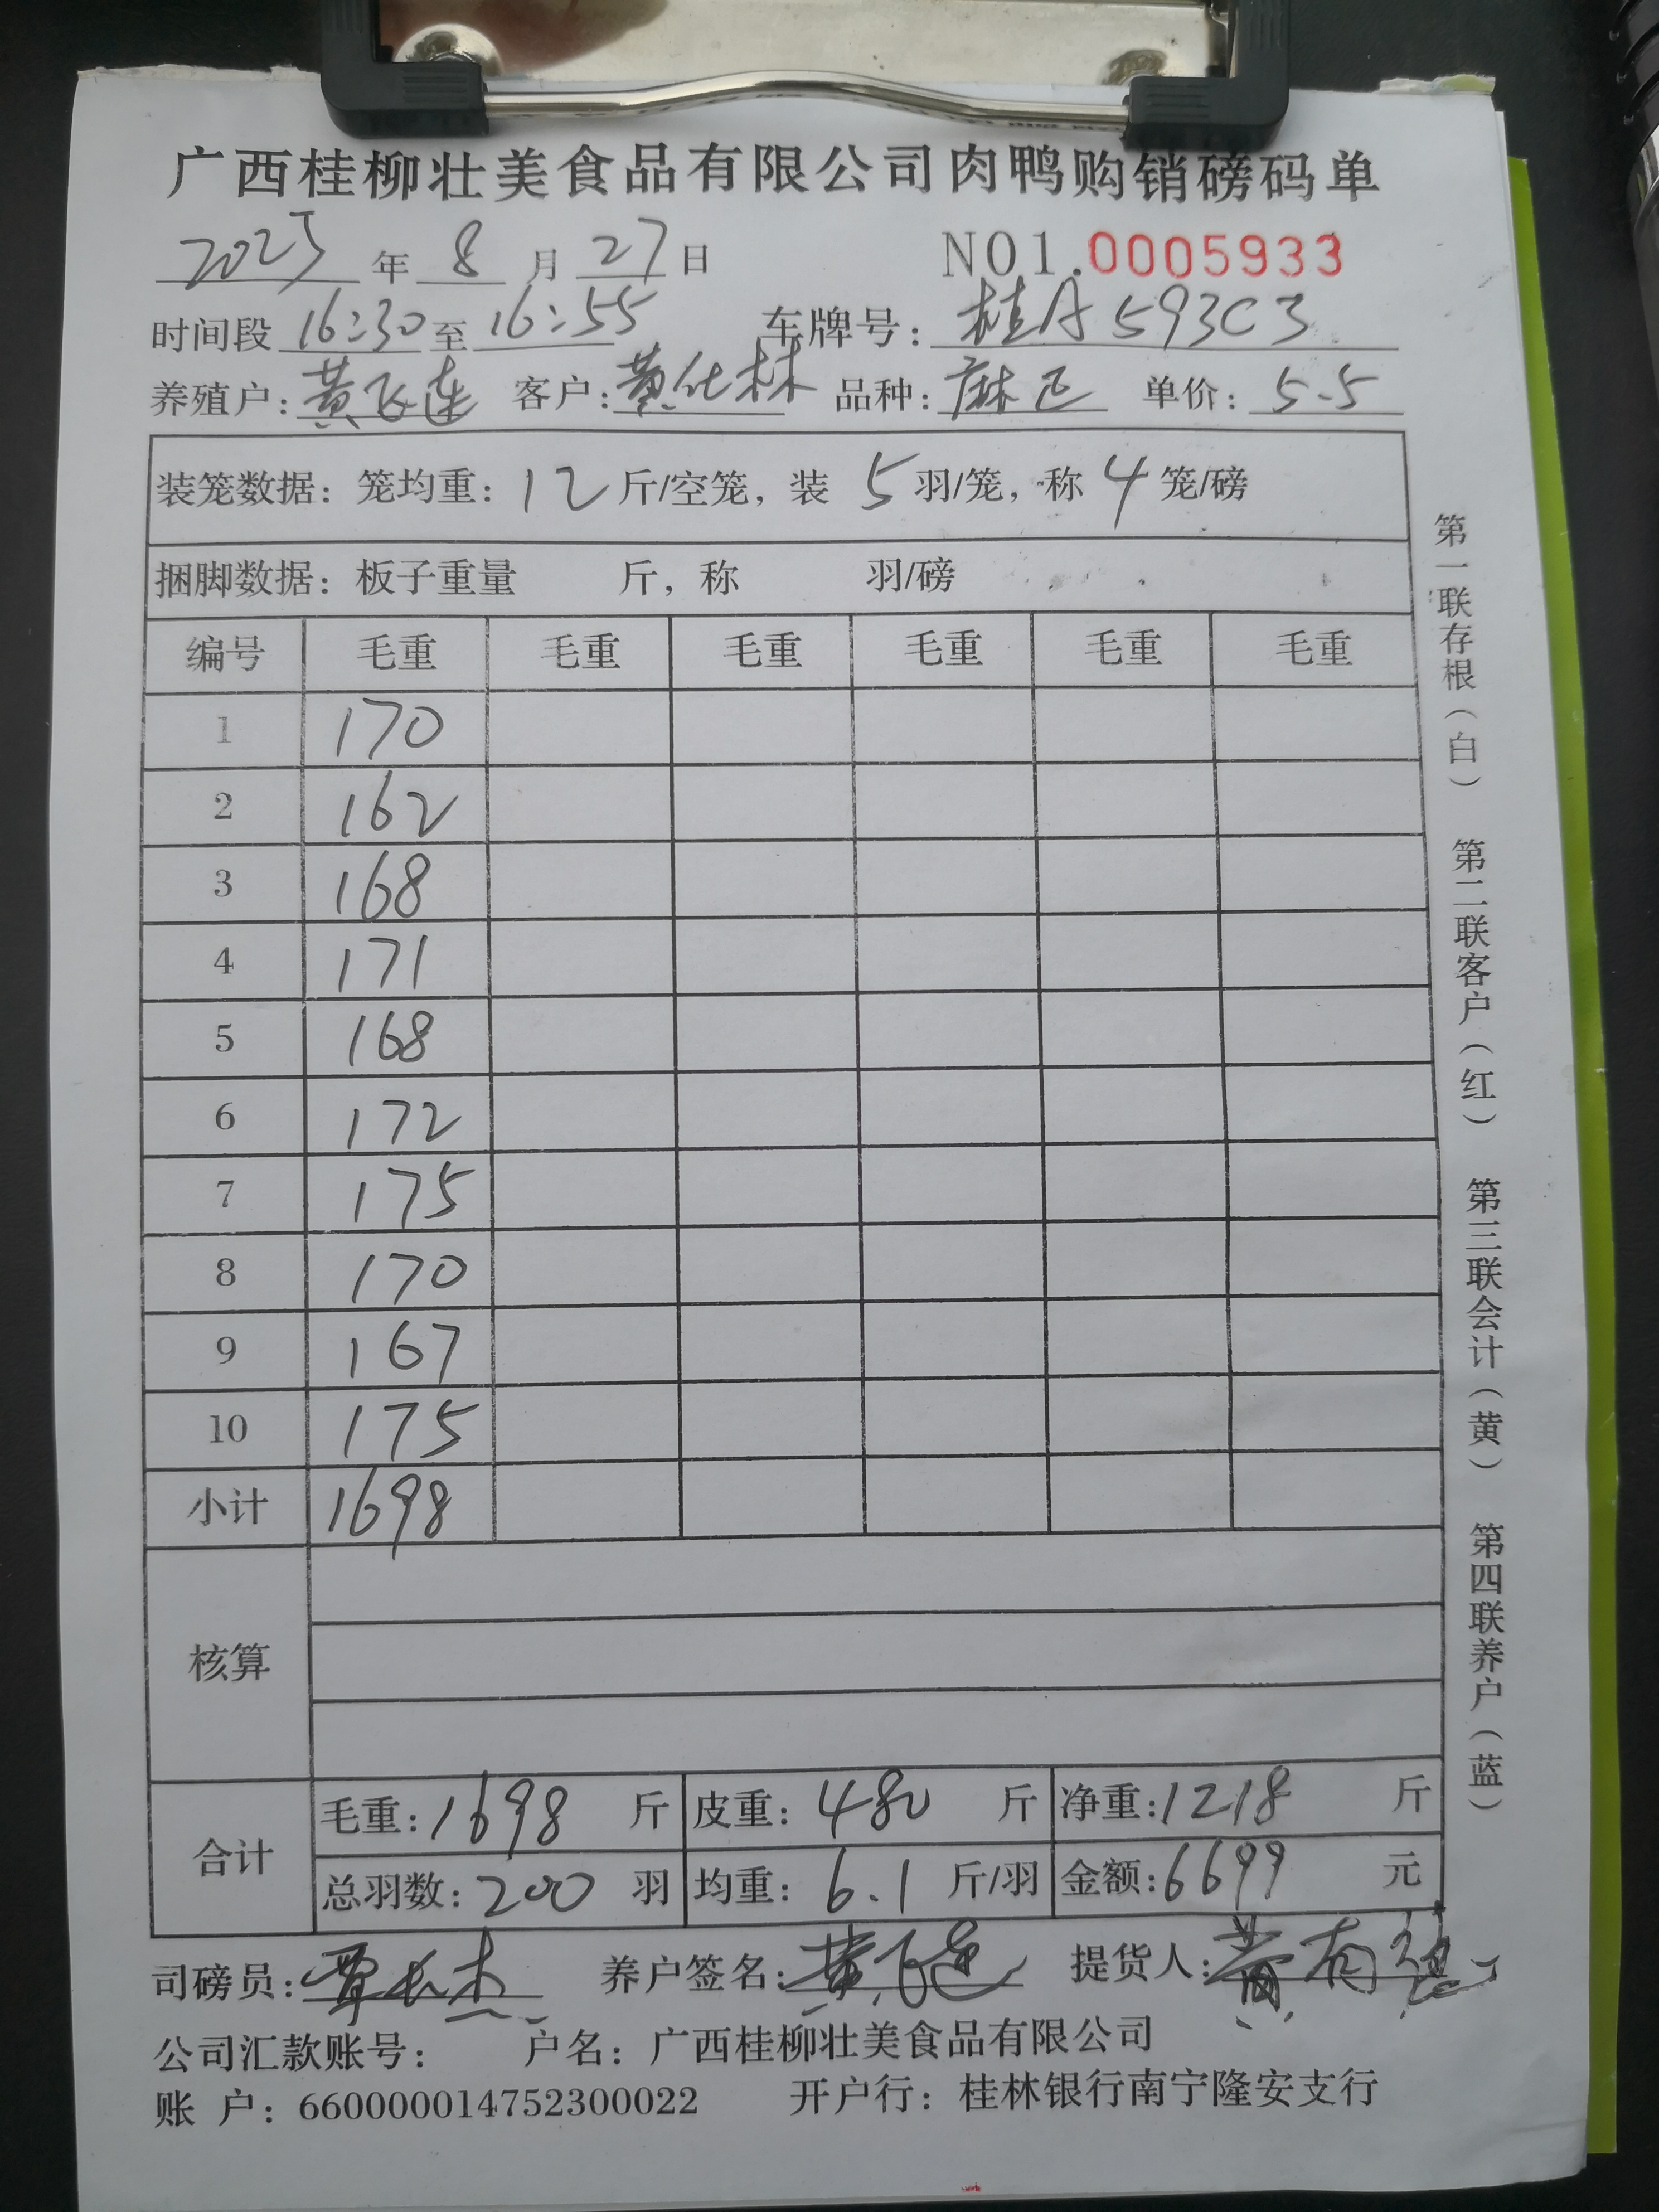 广西桂柳壮美食品有限公司肉鸭购销磅码单
2025年 8月 27日 NO1.0005933
时间段 16:30 至 16:55 车牌号: 桂A593C3
养殖户: 黄飞连 客户: 黄化林 品种: 麻正 单价: 5.5
装笼数据: 笼均重: 12 斤/空笼, 装 5 羽/笼, 称 4 笼/磅
捆脚数据: 板子重量 斤, 称 羽/磅
编号 毛重 毛重 毛重 毛重 毛重 毛重
1 170
2 162
3 168
4 171
5 168
6 172
7 175
8 170
9 167
10 175
小计 1698
核算
合计
毛重: 1698 斤 皮重: 480 斤 净重: 1218 斤
总羽数: 200 羽 均重: 6.1 斤/羽 金额: 6699 元
司磅员: 养户签名: 黄飞连 提货人: 黄有
公司汇款账号: 户名: 广西桂柳壮美食品有限公司
账 户: 660000014752300022 开户行: 桂林银行南宁隆安支行
第一联存根(白) 第二联客户(红) 第三联会计(黄) 第四联养户(蓝)